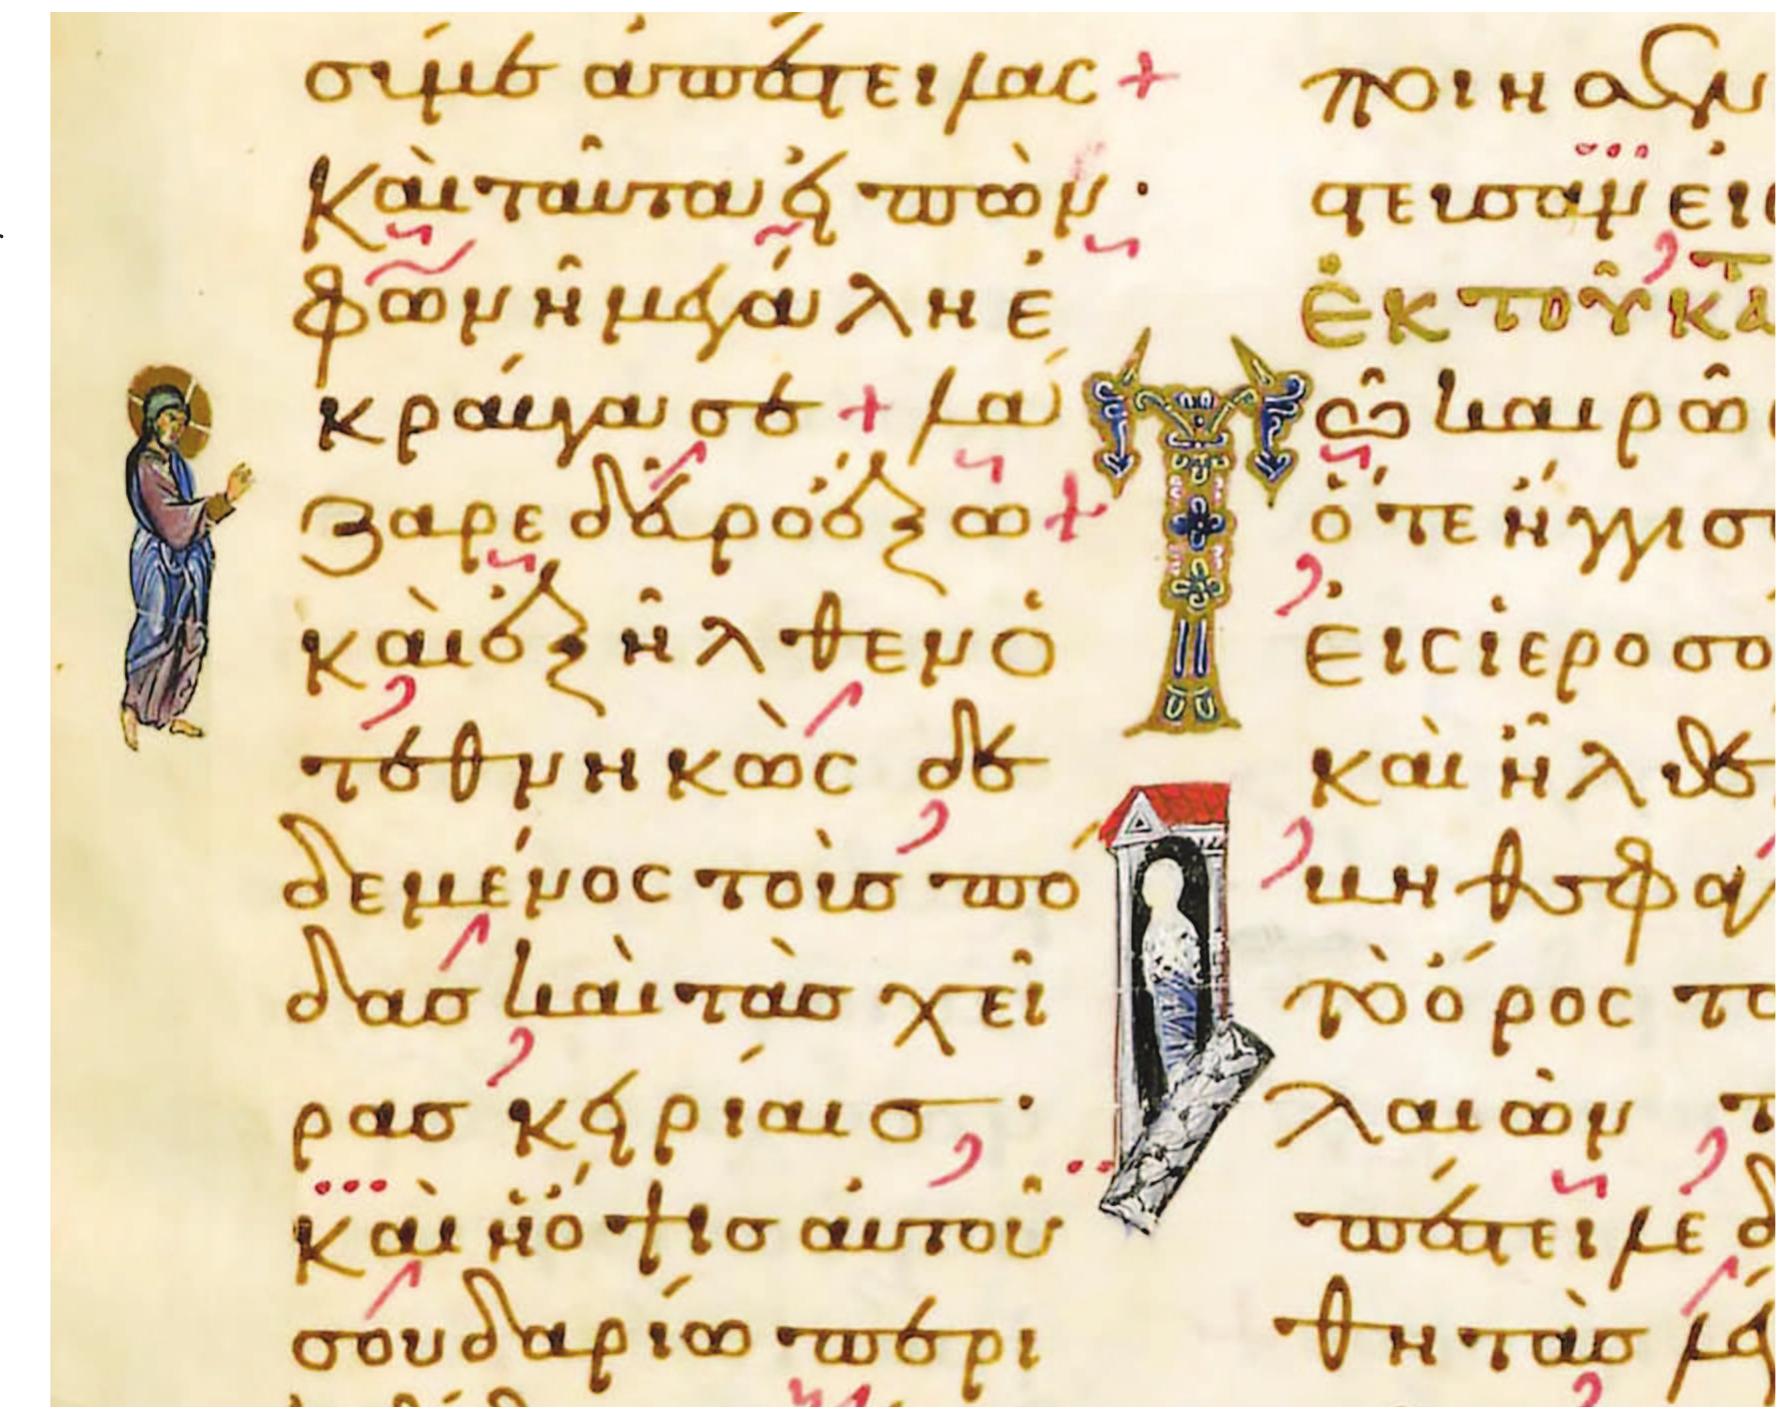 σύ με ἀπέστειλας +
καὶ ταῦτα εἰπὼν ·
φωνῇ μεγάλῃ ἐ
κραύγασε + λά
ζαρε δεῦρο ἔξω +
καὶ ἐξῆλθεν ὁ
τεθνηκὼς δε
δεμένος τοὺσ πό
δασ καὶ τὰσ χεῖ
ρασ κειρίαισ ·
καὶ ἡ ὄψισ αὐτοῦ
σουδαρίω περι
ποίησαν
πευσαν εἰς
ἐκ τοῦ κατὰ
Τῶ καιρῶ
ὅτε ἤγγισ
εἰς ἱεροσο
καὶ ἦλθε
βηθσφα
τὸ ὄρος τ
λαιῶν
θητὰσ